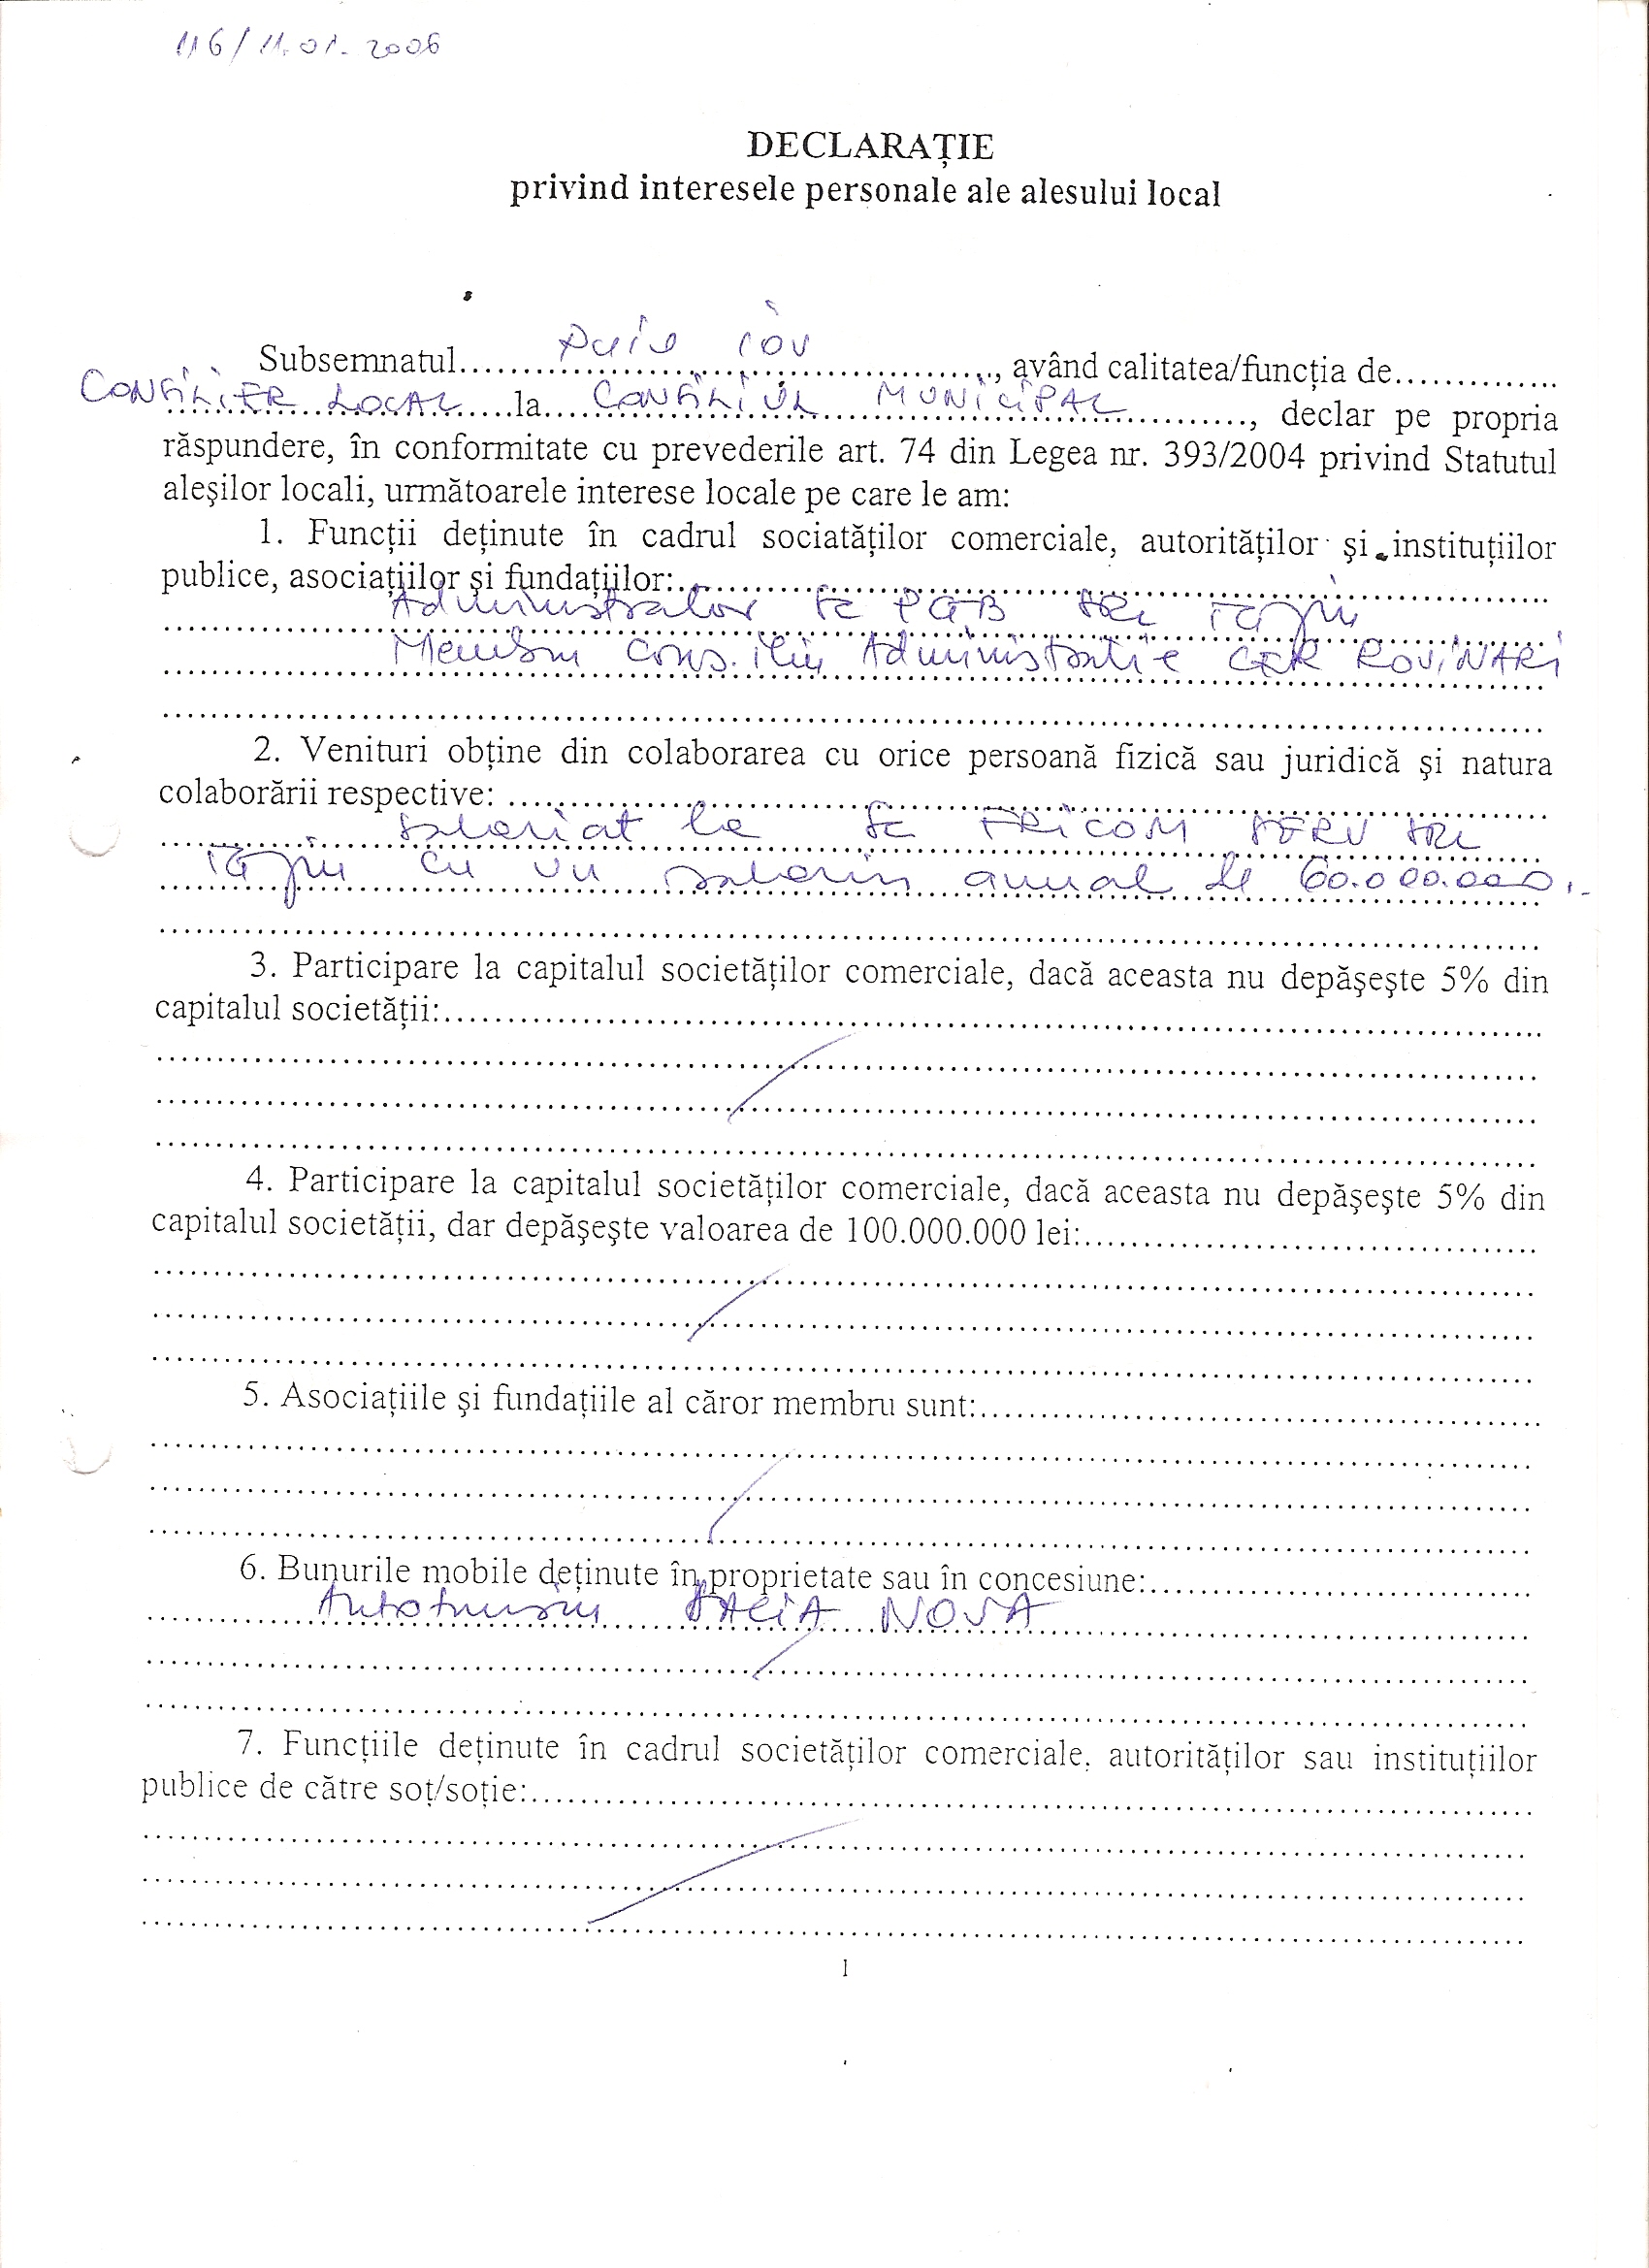 116/11.01.2006
DECLARAŢIE
privind interesele personale ale alesului local
Subsemnatul.......Puiu Ion......., având calitatea/funcţia de..............
CONSILIER LOCAL......la....CONSILIUL MUNICIPAL............, declar pe propria
răspundere, în conformitate cu prevederile art. 74 din Legea nr. 393/2004 privind Statutul
aleşilor locali, următoarele interese locale pe care le am:
1. Funcţii deţinute în cadrul sociatăţilor comerciale, autorităţilor şi instituţiilor
publice, asociaţiilor şi fundaţiilor:..............
Administrator SC PGB SRL TG Jiu
Membru Consiliu Administratie CER ROVINARI
2. Venituri obţine din colaborarea cu orice persoană fizică sau juridică şi natura
colaborării respective: ..............
salariat la SC FRICOM SERV SRL
TG Jiu cu un salariu anual de 60.000.000.-
3. Participare la capitalul societăţilor comerciale, dacă aceasta nu depăşeşte 5% din
capitalul societăţii:..............
4. Participare la capitalul societăţilor comerciale, dacă aceasta nu depăşeşte 5% din
capitalul societăţii, dar depăşeşte valoarea de 100.000.000 lei:..............
5. Asociaţiile şi fundaţiile al căror membru sunt:..............
6. Bunurile mobile deţinute în proprietate sau în concesiune:..............
Autoturism DACIA NOVA
7. Funcţiile deţinute în cadrul societăţilor comerciale, autorităţilor sau instituţiilor
publice de către soţ/soţie:..............
1